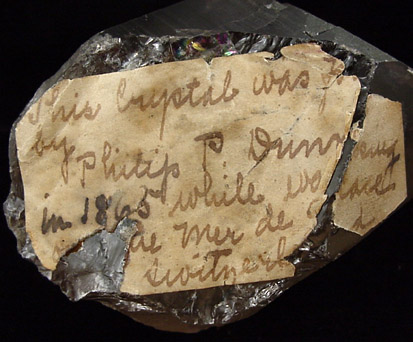 This Crystal was
by Philip P Dunn
in 1865 while
de Mer de
Switzerl